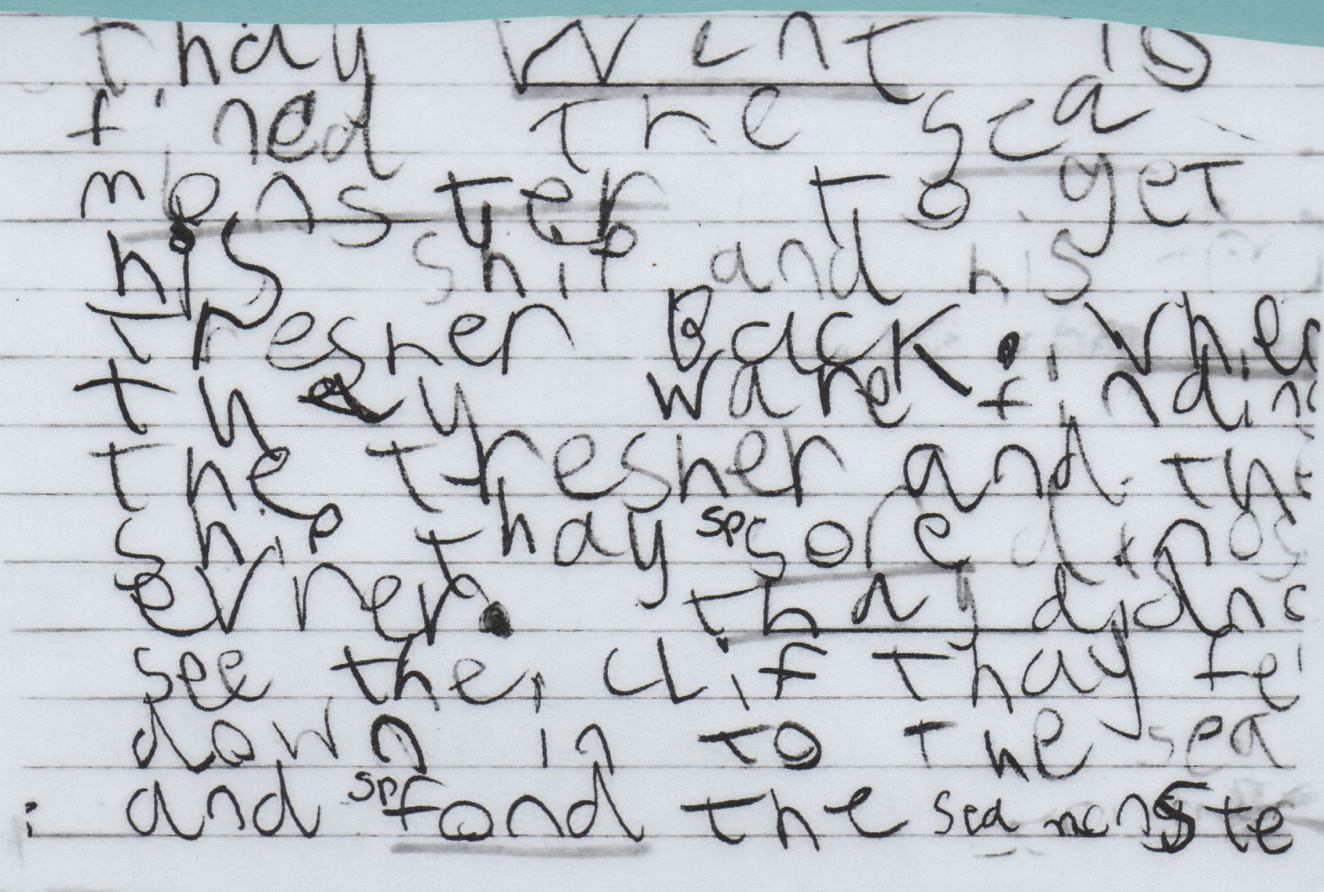 Thay Went to
fined the sea
monster to get
his ship and his
tresher Back. When
they ware finding
the tresher and the
ship thay sp sore
evrrer. thay didn
see the clif thay fe
down in to the sea
and sp fond the sea monste